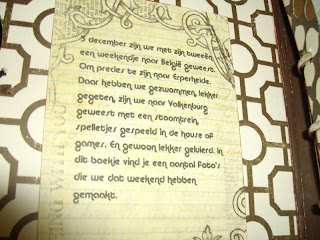 3 december zijn we met zijn tweeën
een weekendje naar België geweest.
Om precies te zijn naar Erperheide.
Daar hebben we gezwommen, lekker
gegeten, zijn we naar Valkenburg
geweest met een stoomtrein,
spelletjes gespeeld in de house of
games. En gewoon lekker geluierd. In
dit boekje vind je een aantal foto's
die we dat weekend hebben
gemaakt.